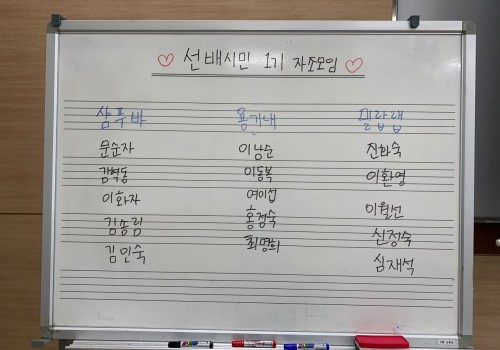 ♡ 선배시민 1기 자조모임 ♡
샴푸바 용기내 밀랍랩
문순자 이남순 진화숙
김혁동 이동복 이환영
이화자 여이섭 이월선
김송림 홍정숙 신정숙
김인숙 최명희 심재석